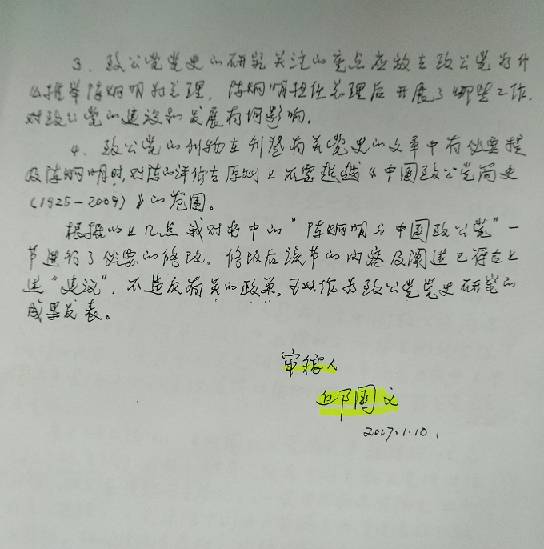 3、致公党党史的研究关注的重点应放在致公党为什
么推举陈炯明为总理，陈炯明担任总理后开展了哪些工作，
对致公党的建设和发展有何影响。
4、致公党的刊物在刊登有关党史的文章中有必要提
及陈炯明时，对陈的评价在原则上不要超越《中国致公党简史
（1925-2009）》的范围。
根据以上几点我对书中的“陈炯明与中国致公党”一
节进行了必要的修改。修改后该节的内容及阐述已符合上
述“建议”，不违反有关的政策，可以作为致公党党史研究的
成果发表。
审稿人
邱国义
2007.1.10.